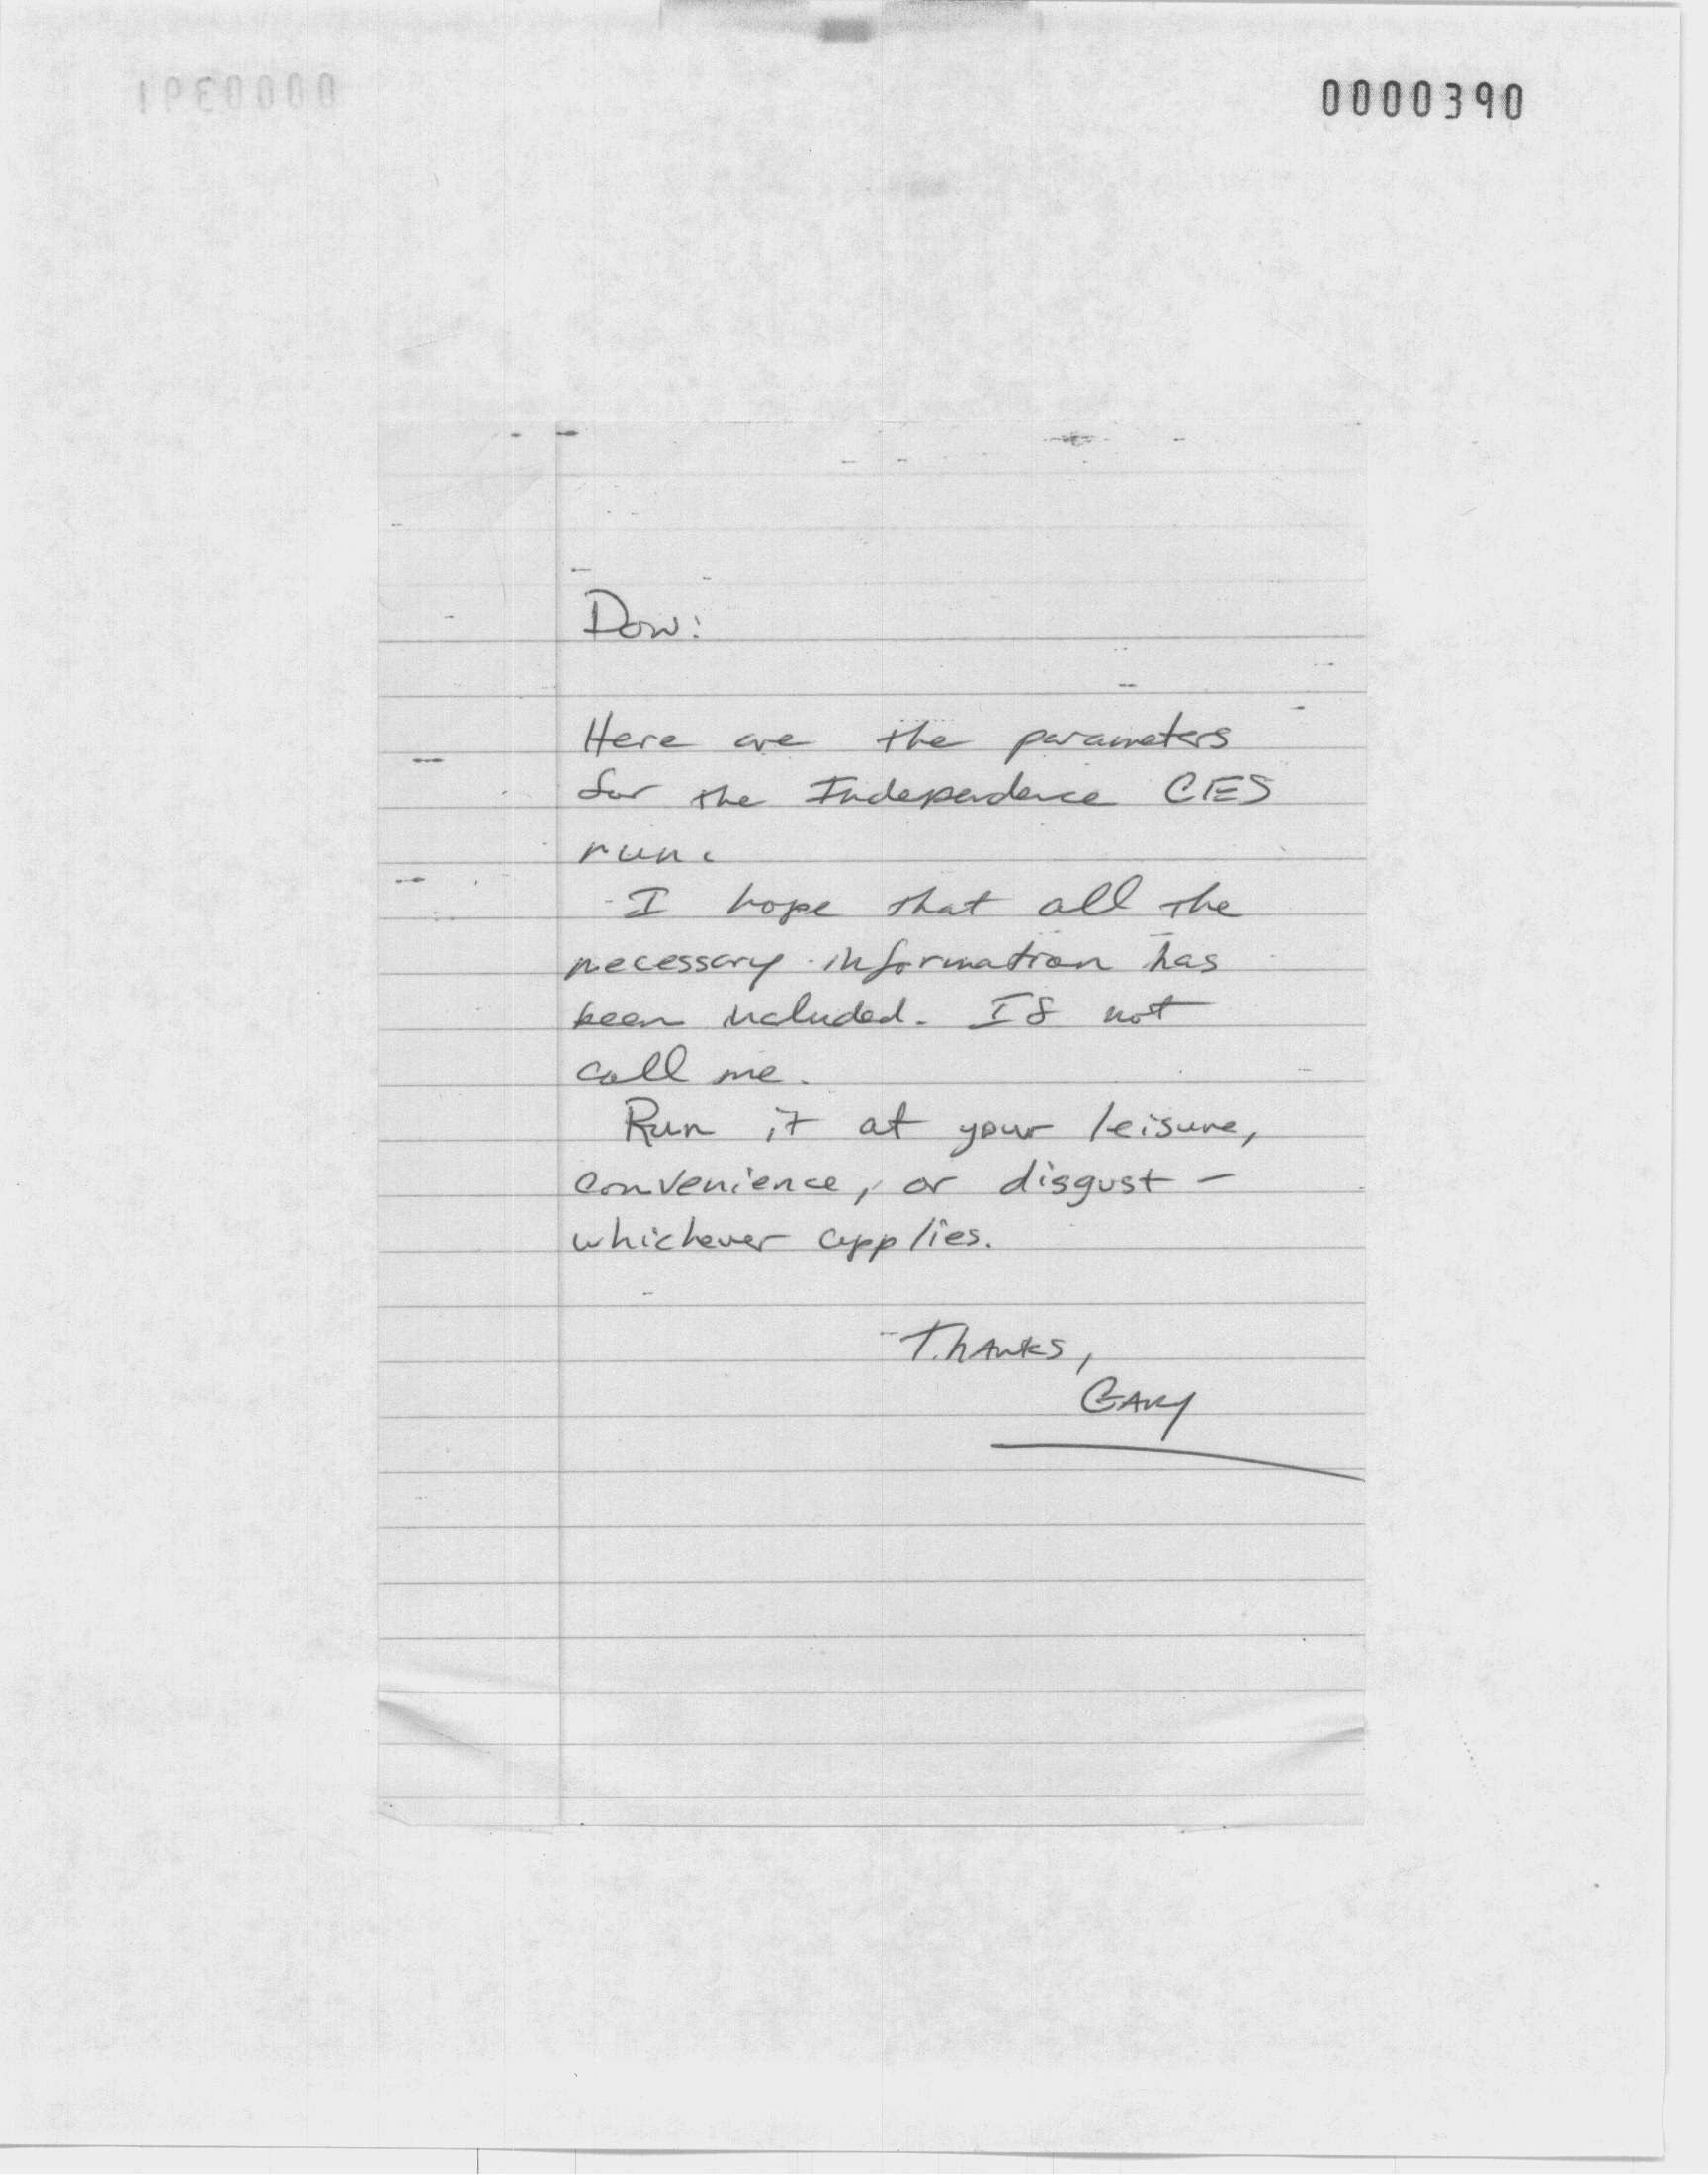 0000390
0000391
Dow:
Here are the parameters
for the Independence CES
run.
I hope that all the
necessary information has
been included. If not
call me.
Run it at your leisure,
convenience, or disgust -
whichever applies.
Thanks,
GARY